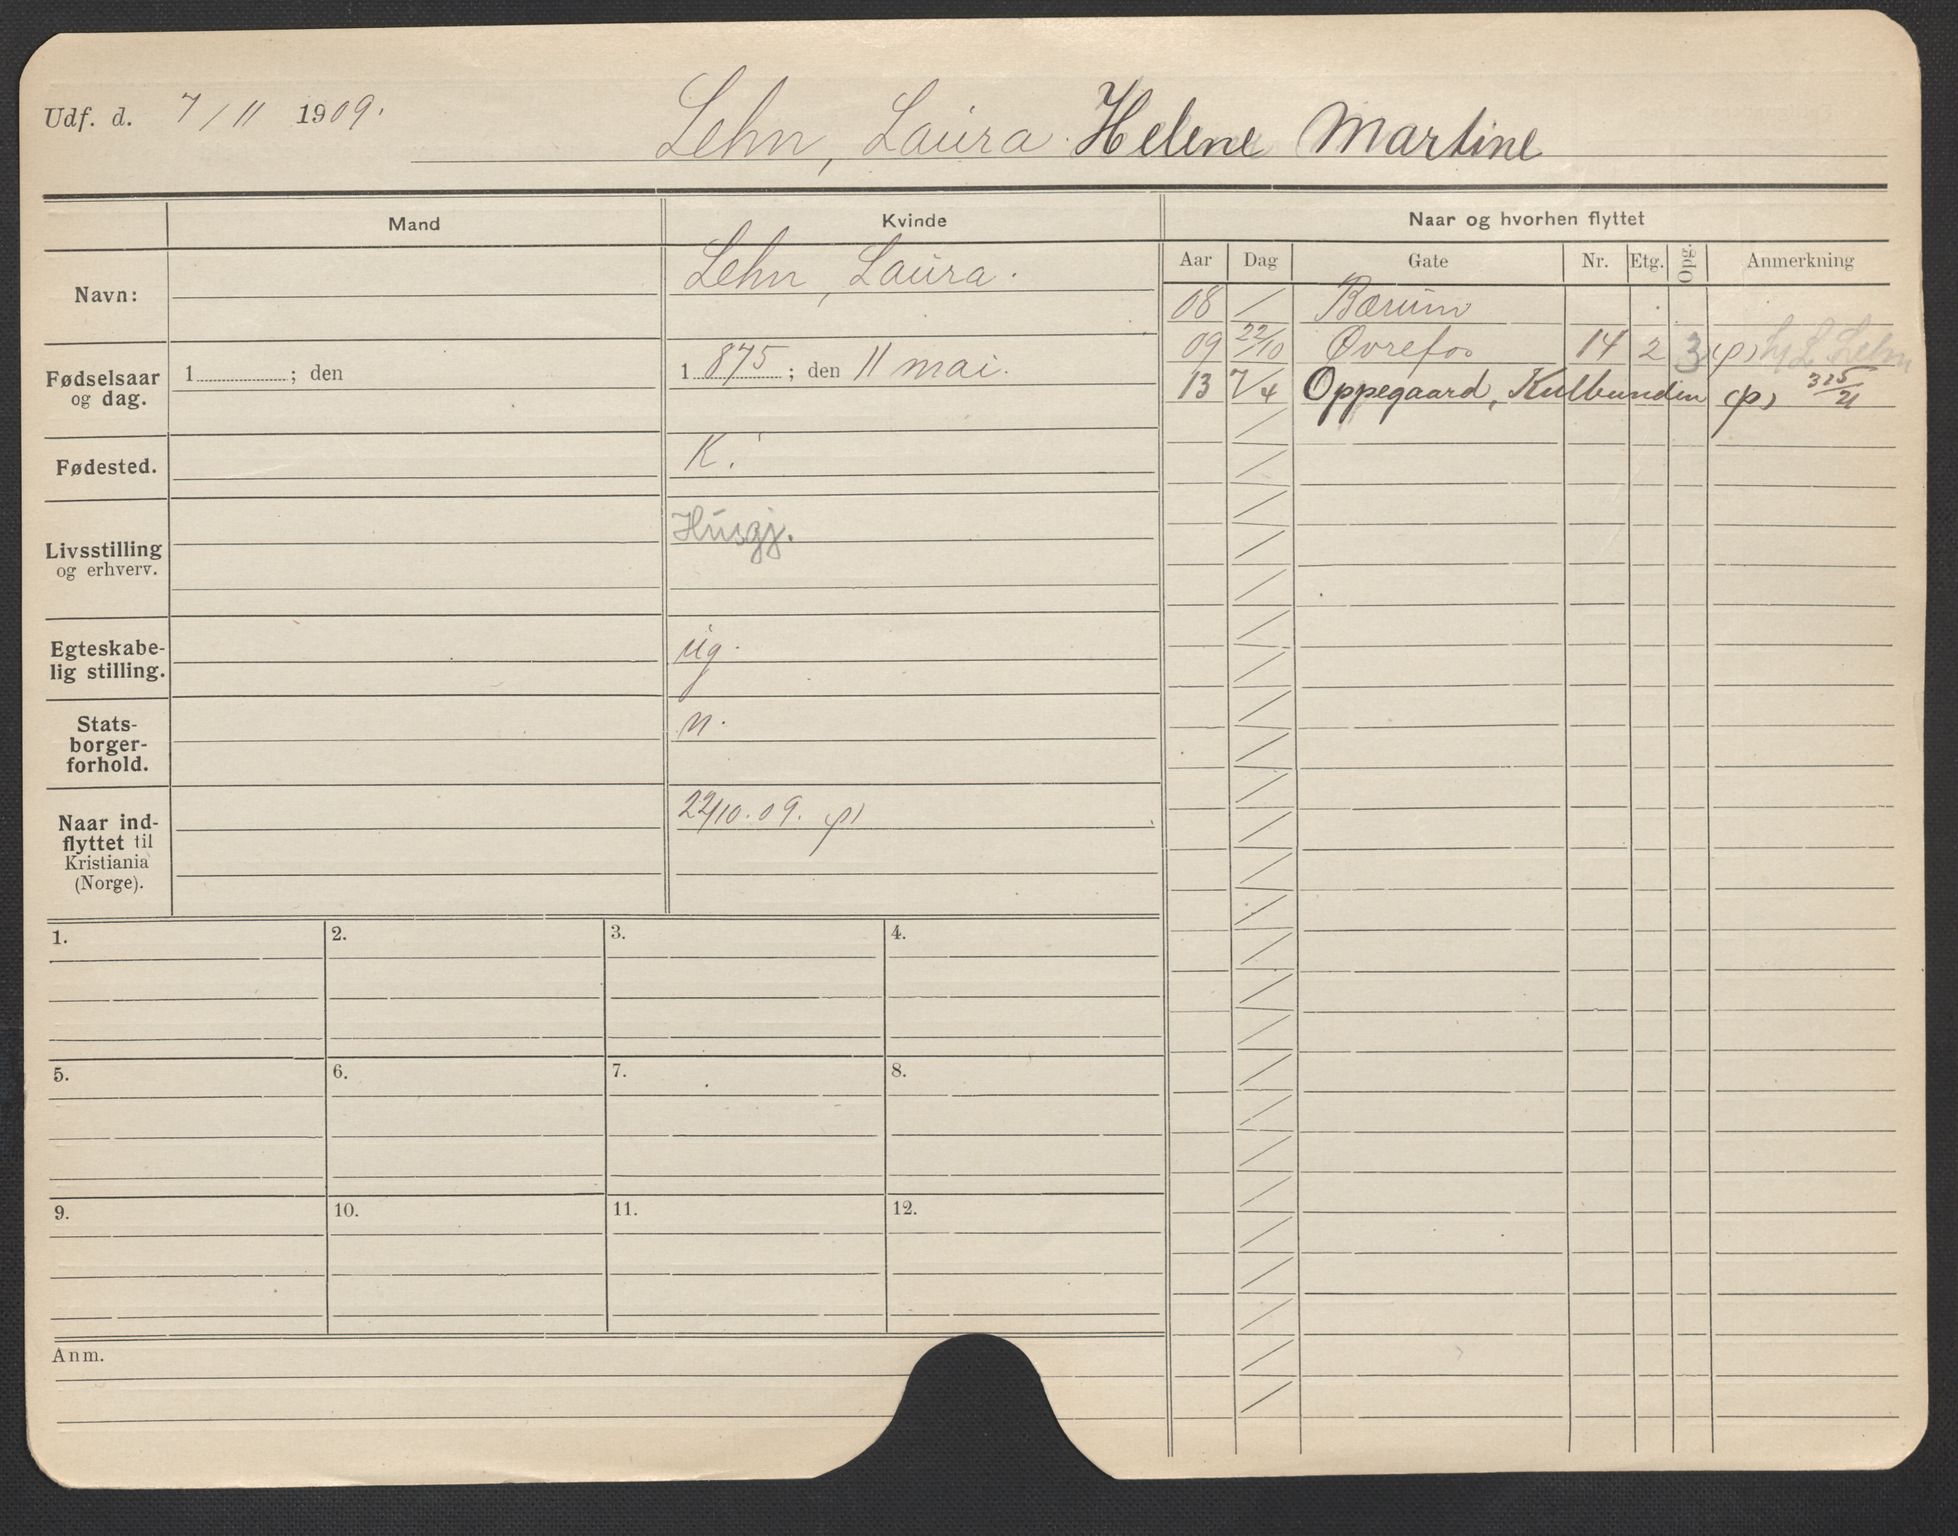 Udf. d. 7/11 1909.
Lehn, Laura Helene Martine
Mand
Kvinde
Naar og hvorhen flyttet
Aar Dag Gate Nr. Etg. Opg. Anmerkning
Navn:
Lehn, Laura.
Fødselsaar og dag.
1 ; den
1 875 ; den 11 mai.
Fødested.
K.
Livsstilling og erhverv.
Husgj.
Egteskabe-
lig stilling.
ug.
Stats-
borger-
forhold.
n.
Naar ind-
flyttet til
Kristiania
(Norge).
22/10.09. (p)
08 / Bærum
09 22/10 Øvrefos 14 2 3 (p) L. Lehn
13 7/4 Oppegaard, Kulbunden (p) 315/21
1.
2.
3.
4.
5.
6.
7.
8.
9.
10.
11.
12.
Anm.